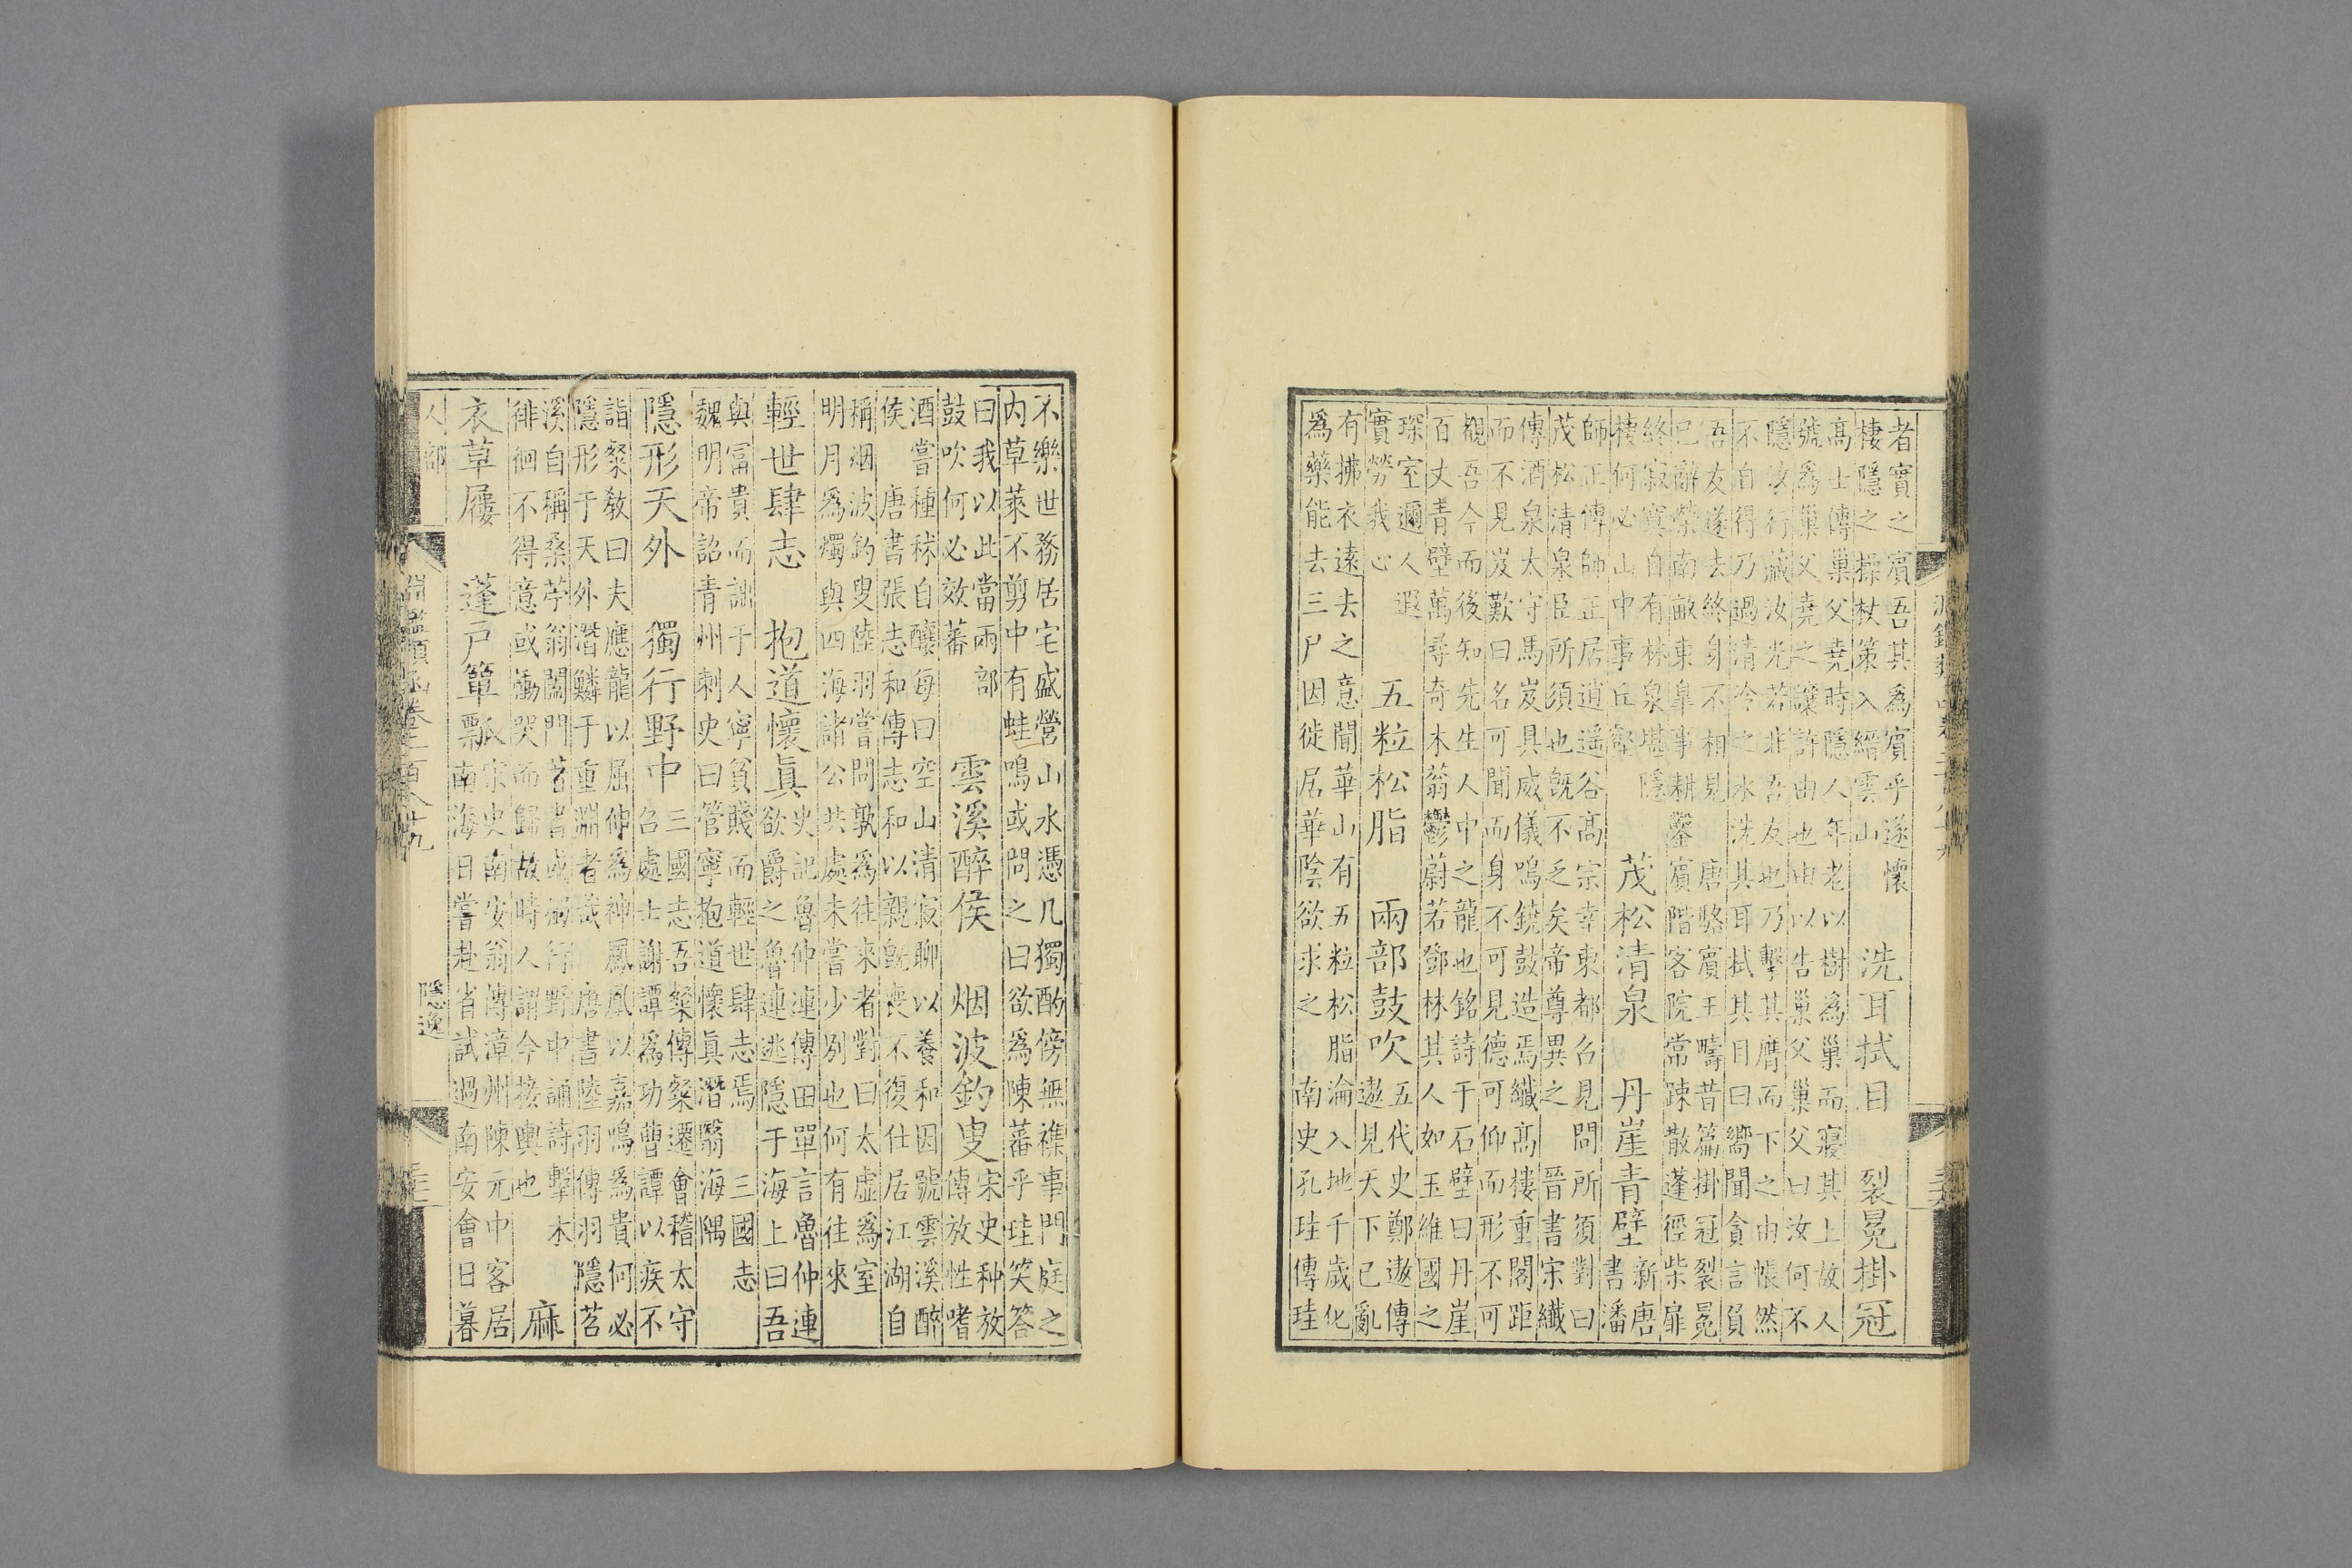 者實之賓吾其爲賓乎遂懷
棲隱之操杖策入縉雲山
洗耳拭目 裂冕掛冠
高士傳巢父堯時隱人年老以樹爲巢而寢其上故人
號爲巢父堯之讓許由也由以告巢父巢父曰汝何不
隱汝行藏汝光若非吾友也乃擊其膺而下之由悵然
不自得乃過清泠之水洗其耳拭其目曰嚮聞貪言負
吾友遂去終身不相見 唐駱賓王疇昔篇掛冠裂冕
已辭榮南畝東臯事耕鑿賓階客院常踈散蓬徑柴扉
終寂寞自有林泉堪隱
棲何必山中事丘壑
茂松清泉 丹崖青壁
新唐
書潘
師正傳師正居逍遙谷高宗幸東都召見問所須對曰
茂松清泉臣所須也旣不乏矣帝尊異之 晉書宋纖
傳酒泉太守馬岌具威儀鳴鐃鼓造焉纖高樓重閣距
而不見岌歎曰名可聞而身不可見德可仰而形不可
覩吾今而後知先生人中之龍也銘詩于石壁曰丹崖
百丈青壁萬尋奇木蓊鬱蔚若鄧林其人如玉維國之
琛室邇人遐
實勞我心
五粒松脂 兩部鼓吹
五代史鄭遨傳
遨見天下已亂
有拂衣遠去之意聞華山有五粒松脂淪入地千歲化
爲藥能去三尸因徙居華陰欲求之 南史孔珪傳珪
不樂世務居宅盛營山水憑几獨酌傍無雜事門庭之
內草萊不剪中有蛙鳴或問之曰欲爲陳蕃乎珪笑答
曰我以此當兩部
鼓吹何必效蕃
雲溪醉侯 烟波釣叟
宋史种放
傳放性嗜
酒嘗種秫自釀每曰空山清寂聊以養和因號雲溪醉
侯 唐書張志和傳志和以親旣喪不復仕居江湖自
稱烟波釣叟陸羽嘗問孰爲往來者對曰太虛爲室
明月爲燭與四海諸公共處未嘗少別也何有往來
輕世肆志 抱道懷眞
史記魯仲連傳田單言魯仲連
欲爵之魯連逃隱于海上曰吾
與富貴而詘于人寧貧賤而輕世肆志焉 三國志
魏明帝詔青州刺史曰管寧抱道懷眞潛翳海隅
隱形天外 獨行野中
三國志吾粲傳粲遷會稽太守
召處士謝譚爲功曹譚以疾不
詣粲敎曰夫應龍以屈伸爲神鳳凰以嘉鳴爲貴何必
隱形于天外潛鱗于重淵者哉 唐書陸羽傳羽隱苕
溪自稱桑苧翁闔門著書或獨行野中誦詩擊木
徘徊不得意或慟哭而歸故時人謂今接輿也
麻
衣草屨 蓬戶簞瓢
宋史南安翁傳漳州陳元中客居
南海日嘗赴省試過南安會日暮
人部
淵鑑類函卷二百八十九
隱逸